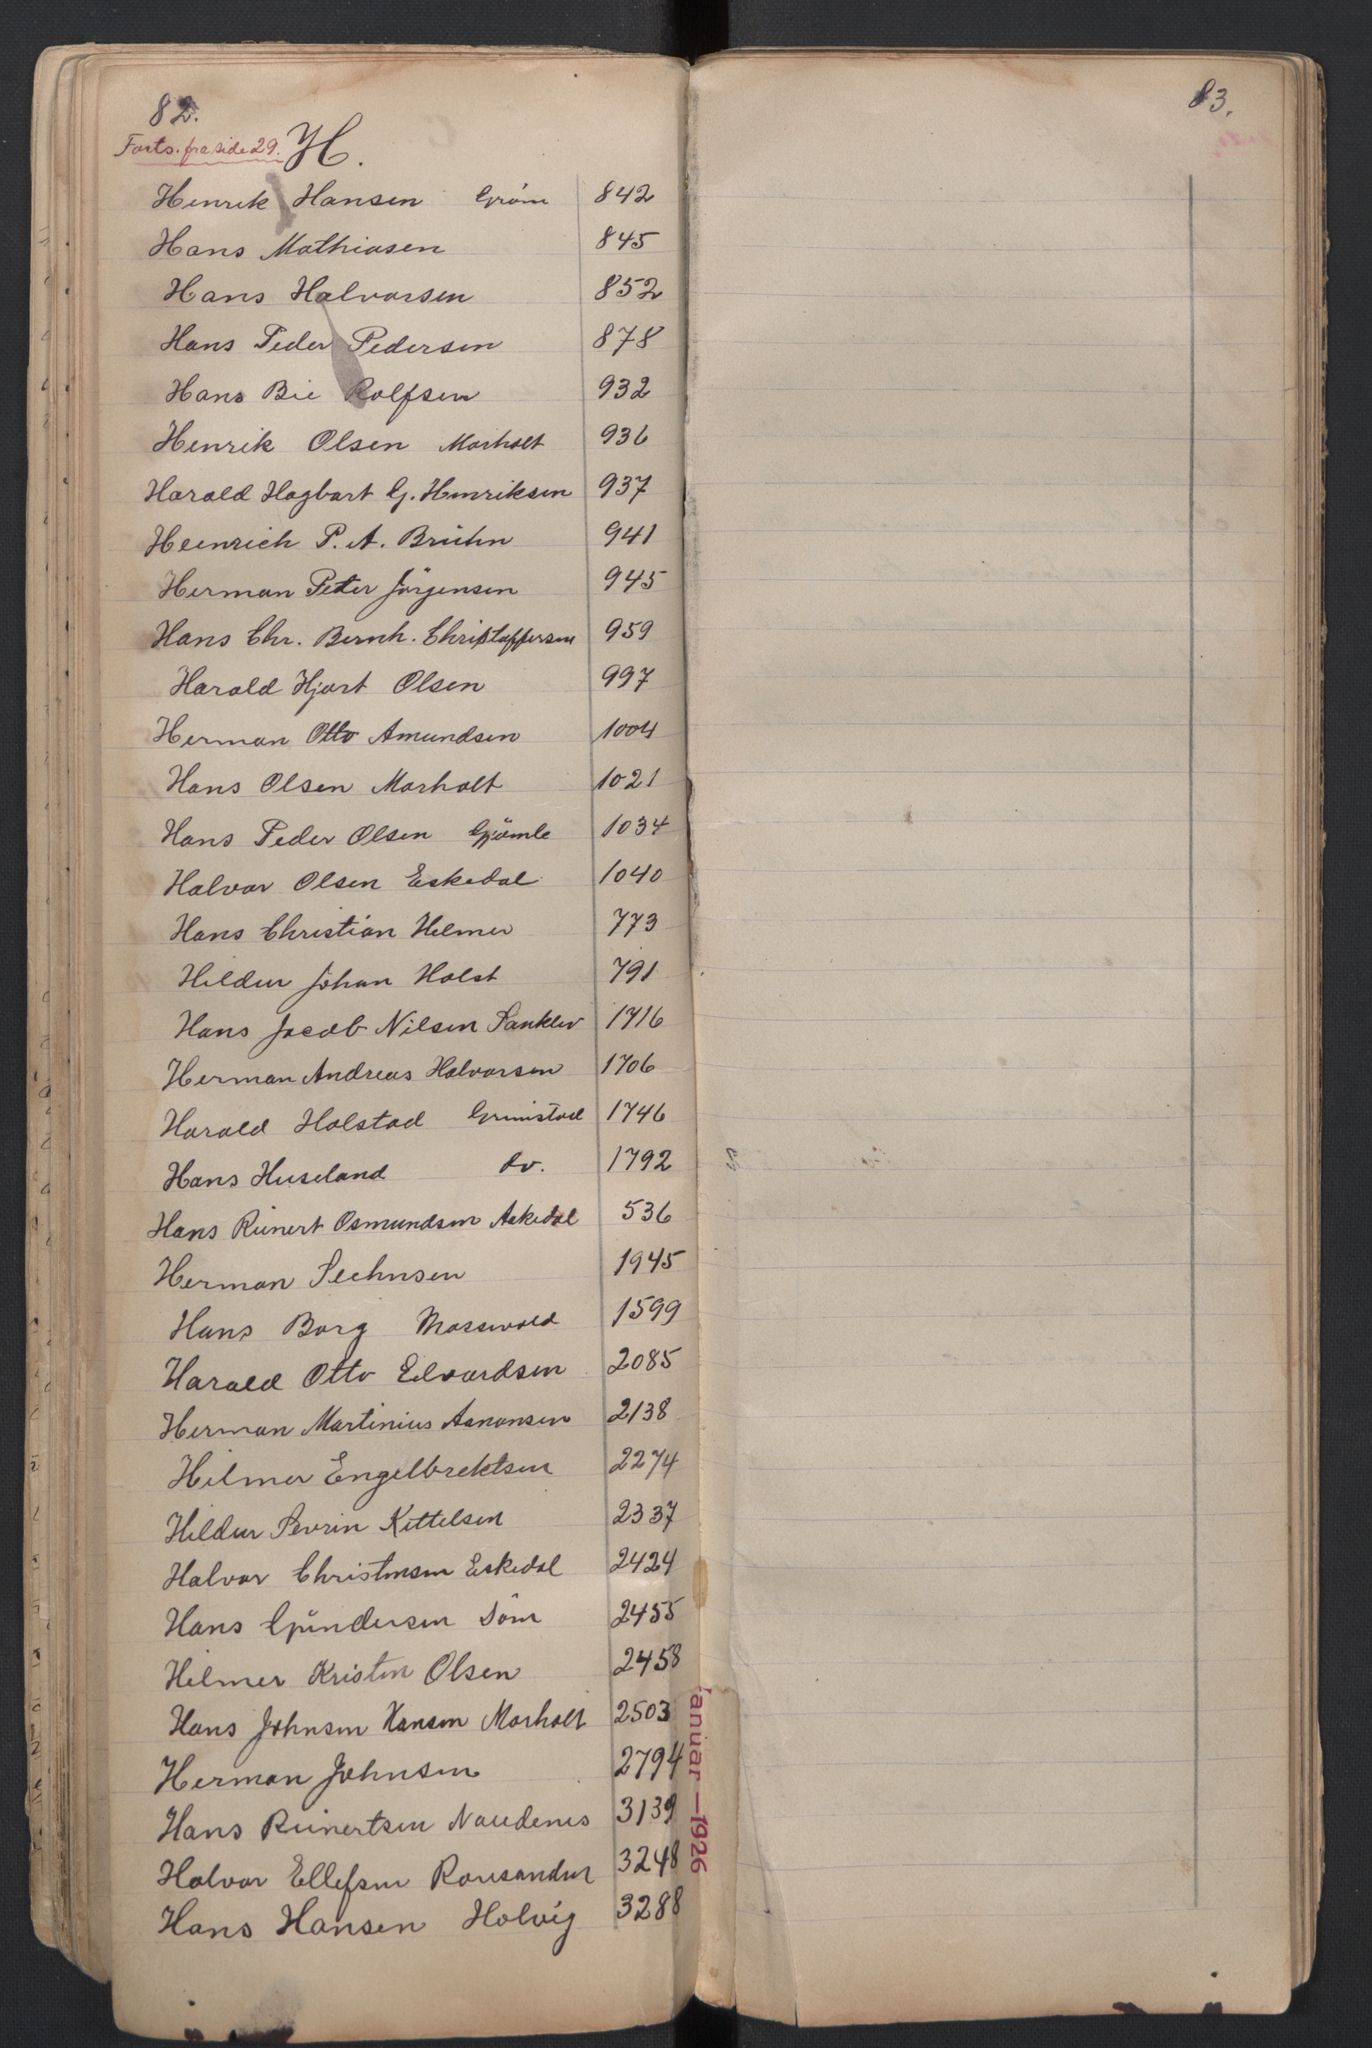 82.
Forts. fra side 29. H.
Henrik Hansen Grøm 842
Hans Mathiasen 845
Hans Halvorsen 852
Hans Peder Pedersen 878
Hans Bie Rolfsen 932
Henrik Olsen Morholt 936
Harald Hagbart G. Henriksen 937
Heinrich P. A. Brühn 941
Herman Peter Jörgensen 945
Hans Chr. Bernh. Christoffersen 959
Harald Hjort Olsen 997
Herman Otto Amundsen 1004
Hans Olsen Morholt 1021
Hans Peder Olsen Gjömle 1034
Halvor Olsen Eskedal 1040
Hans Christian Helmer 773
Hildur Johan Holst 791
Hans Jacob Nilsen Sanklev 1716
Herman Andreas Halvorsen 1706
Harald Halstad Grimstad 1746
Hans Huseland do. 1792
Hans Reinert Osmundsen Askedal 536
Herman 1945
Hans Borg Mosswold 1599
Harald Otto Edvardsen 2085
Herman Martinius Aanonsen 2138
Hilmer Engelbrektsen 2274
Hildur Sevrin Kittelsen 2337
Halvor Christensen Eskedal 2424
Hans Gundersen Döm 2455
Hilmer Kristen Olsen 2458
Hans Johnsen Hansen Morholt 2503
Herman Johnsen 2794
Hans Reinertsen Naudenes 3139
Halvor Ellefsen 3248
Hans Hansen Holvig 3288
Januar—1926
83.